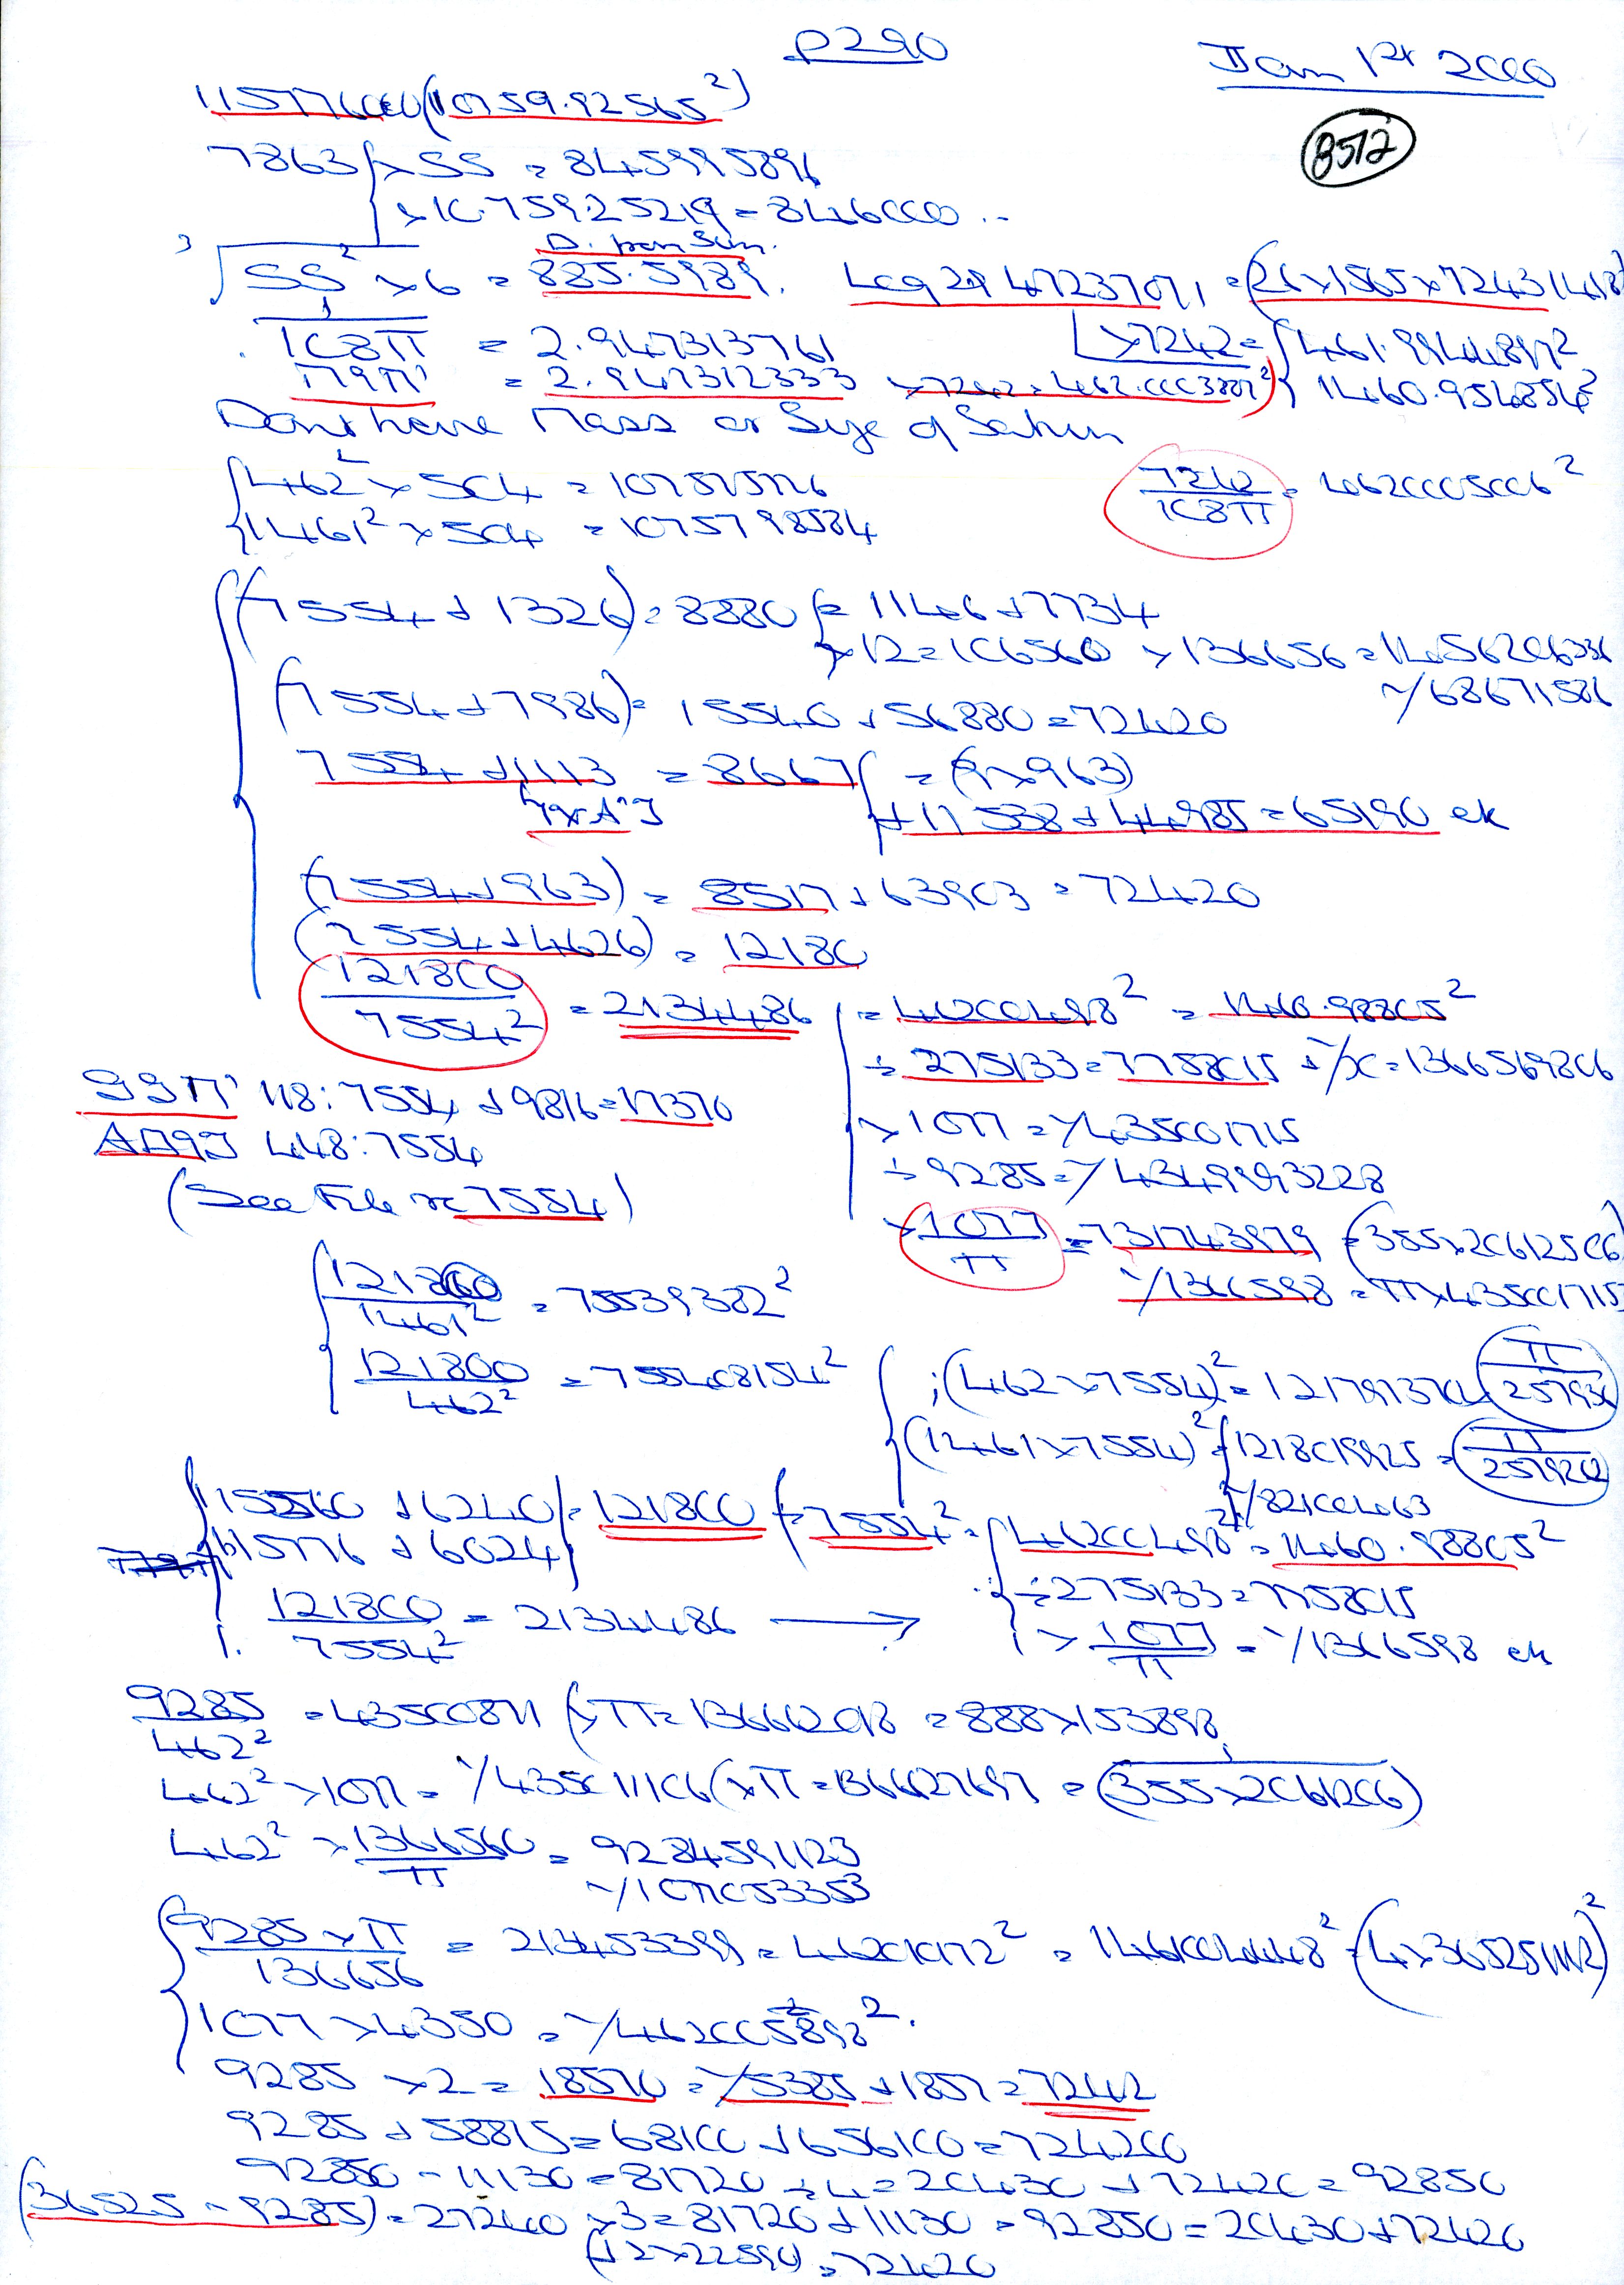 P290
Jan 1st 2000
8572
115776000(10759.92565²)
7863 { × SS = 845995896
× 10.75925219 = 8460000 ..
D. from Sun.
³√SS² × 6 = 885.5989. Log 2.947237071 = (26×1565×72431418)
108π = 2.947313761 × 7242 = { 461.9944897²
= 2.947312333 × 7242 = 462.0003887² ) } 1460.954854²
Dont have Mass or Size of Saturn
{ 462² × 504 = 107575776
{ 1461² × 504 = 1075798584
7242/108π = 4620005006²
(7554 + 1326) = 8880 { = 1146 + 7734
× 12 = 106560 × 136656 = 1456206336
~/68671586
(7554 + 7986) = 15540 + 56880 = 72420
7554 + 1113 = 8667 { = (9×963)
+ 11538 + 44985 = 65190 ek
(7554 + 963) = 8517 + 63903 = 72420
(7554 + 4626) = 12180
121800/7554² = 2134486 { = 46200498² = 1460.98805²
÷ 275133 = 7758015 + ~/x = 1366569806
× 1077 = ~/435001715
÷ 9285 = ~/4349993228
× 1077/π = 731743979 = (355×20612506)
~/1366598 = π×435001715
118: 7554 + 9816 = 17370
448: 7554
(See File re 7554)
{ 121800/1461² = 75539382²
{ 121800/462² = 755408154² { ; (462×7554)² = 1217973704 π/257936
(1461×7554)² { 1218019925 = π/257926
~/82100463
{ 115560 + 6240 } = 121800 { ÷ 7554² = { 46200498² = 1460.98805²
{ 115776 + 6024 } ÷ 275133 = 7758015
121800/7554² = 2134486 → × 1077/π = ~/1366598 ek
9285/462² = 43500871 (×π = 136662018 = 888×153898
462² × 1077 = ~/435011106 (×π = 136627697 = (355×2061206)
462² × 1366560/π = 9284591123
~/1077053353
{ 9285×π/136656 = 213453399 = 46201072² = 146100448² = (4×36525112)²
{ 1077 × 4350 = ~/462005898².
9285 × 2 = 18570 = ~/5385 + 1857 = 7242
9285 + 58815 = 68100 + 656100 = 724200
92850 - 11130 = 81720 ÷ 4 = 20430 + 72420 = 92850
(36525 - 9285) = 27240 × 3 = 81720 + 11130 = 92850 = 20430 + 72420
(+ 2×22590) = 72420